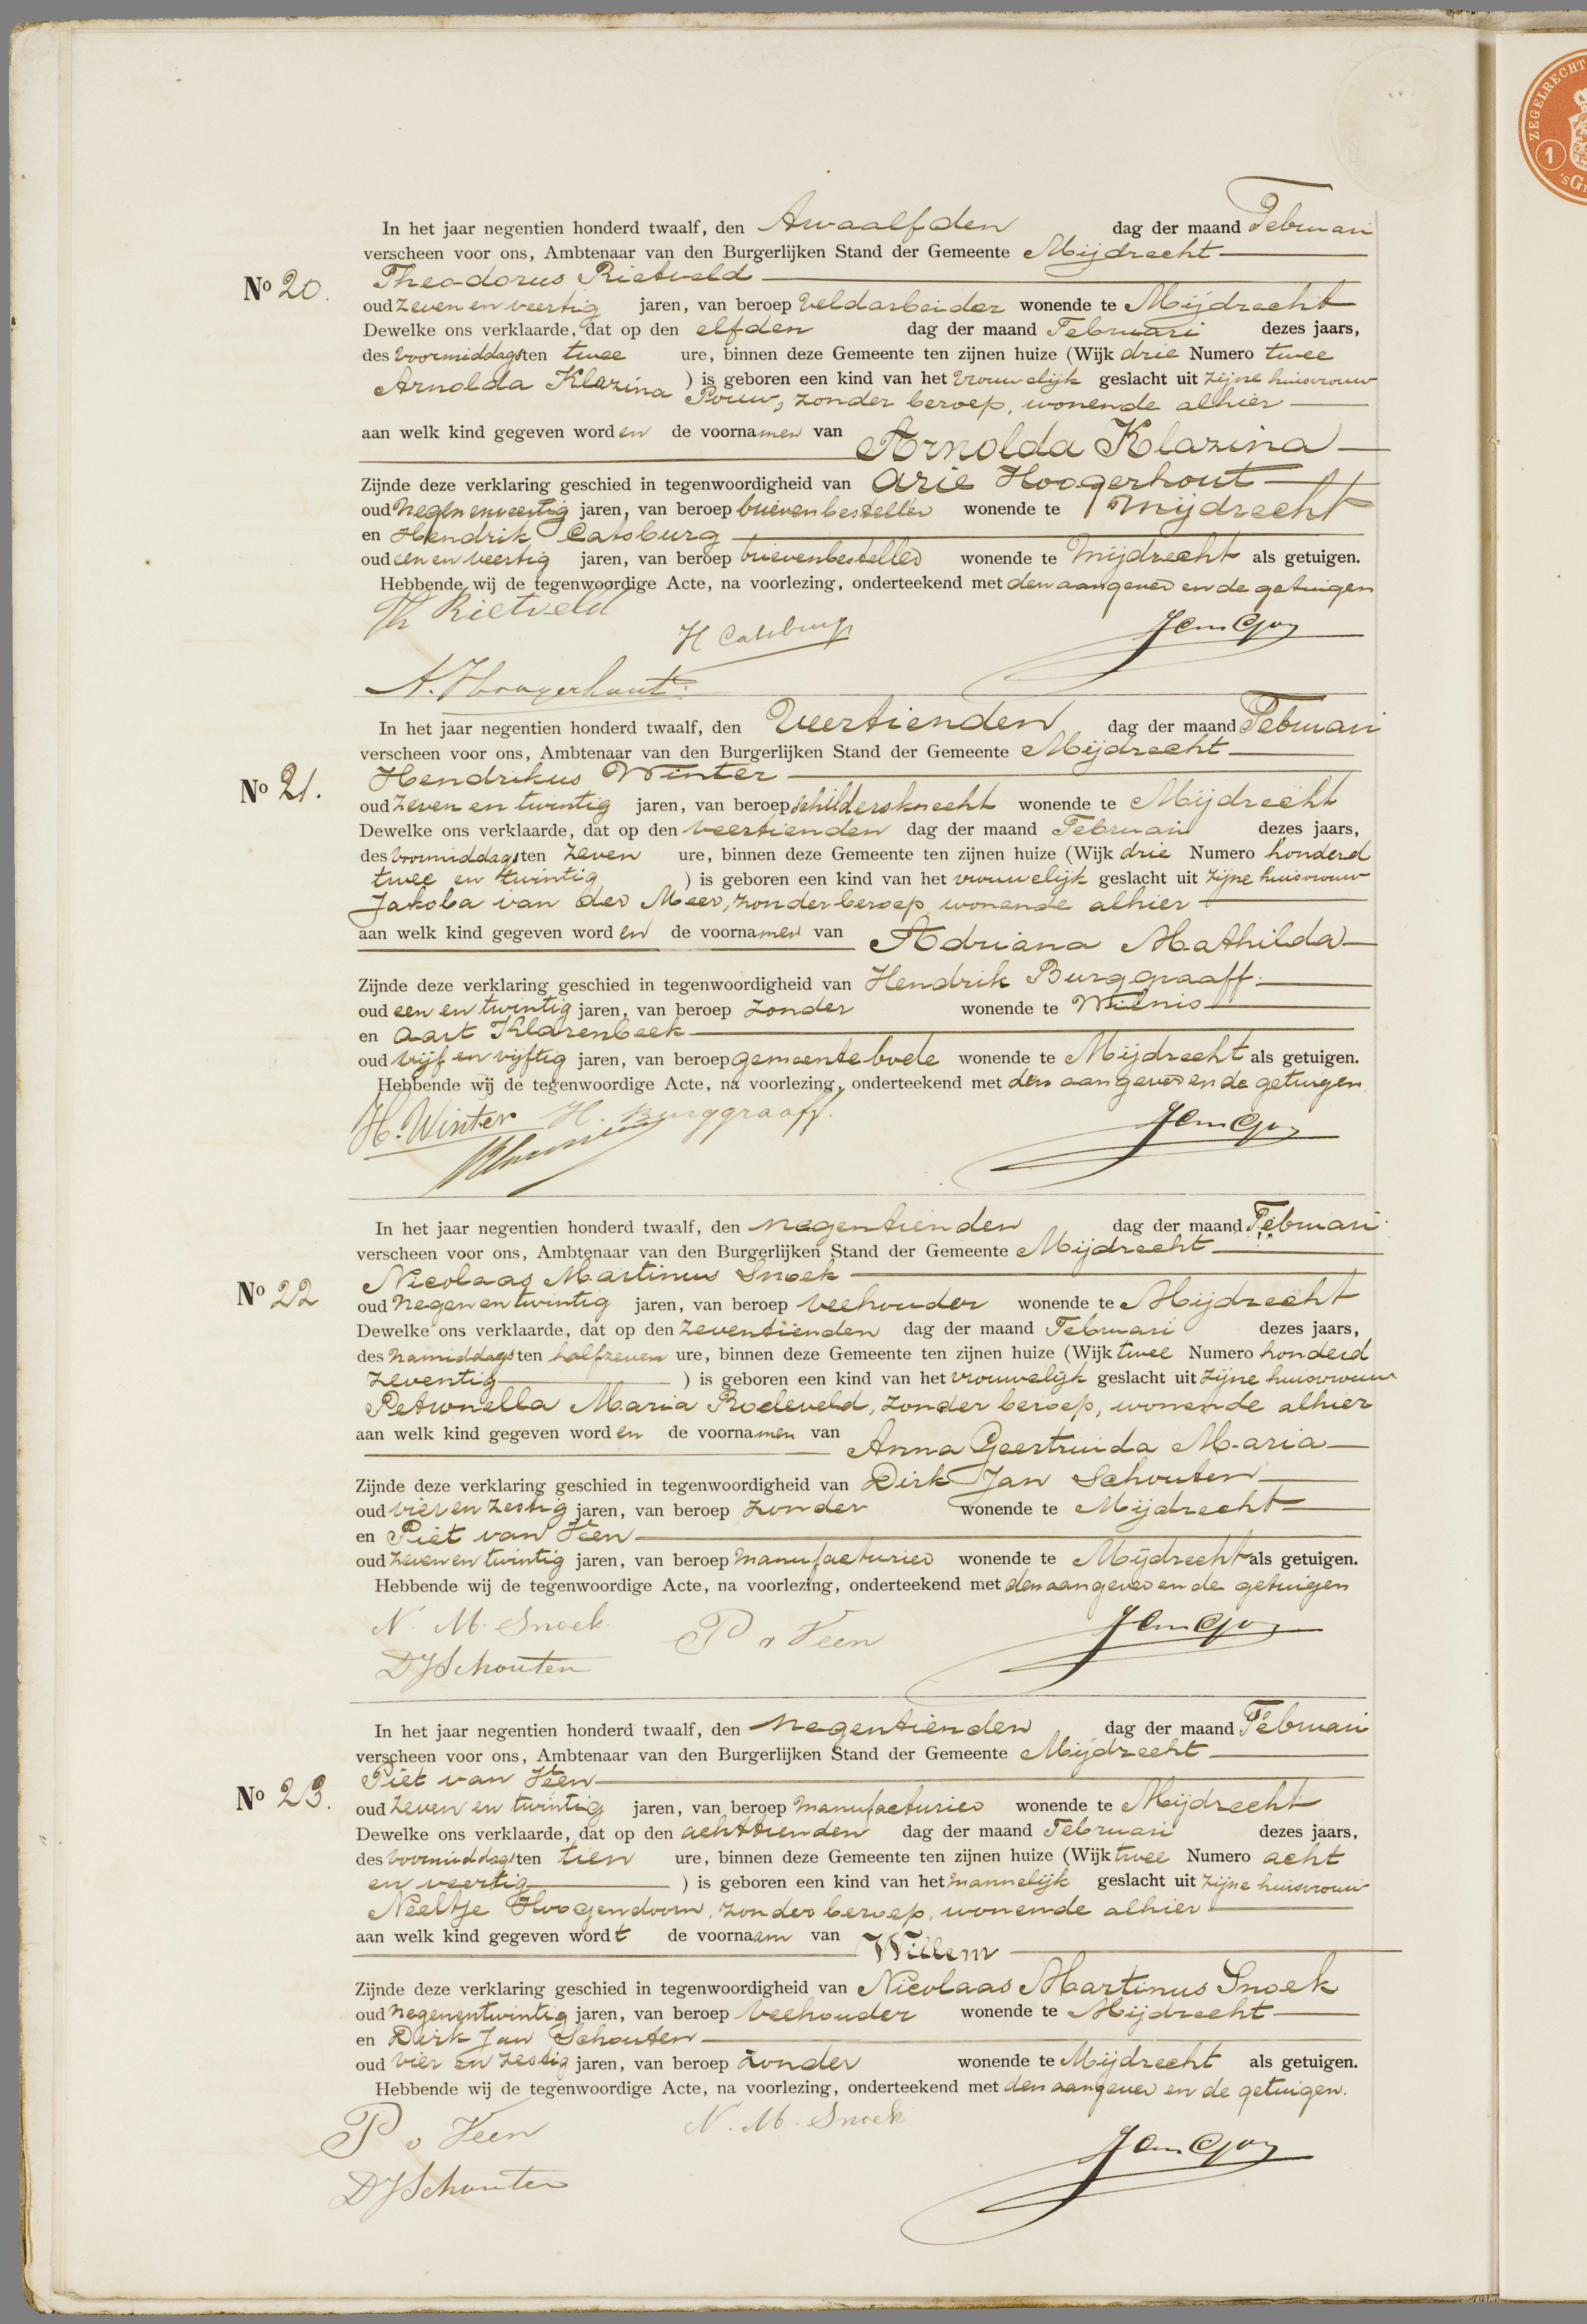 In het jaar negentien honderd twaalf, den Twaalfden dag der maand Februari
verscheen voor ons, Ambtenaar van den Burgerlijken Stand der Gemeente Mijdrecht
No 20. Theodorus Rietveld
oud zeven en veertig jaren, van beroep Veldarbeider wonende te Mijdrecht
Dewelke ons verklaarde, dat op den elfden dag der maand Februari dezes jaars,
des Voormiddags ten twee ure, binnen deze Gemeente ten zijnen huize (Wijk drie Numero twee
) is geboren een kind van het Vrouwelijk geslacht uit zijne huisvrouw
Arnolda Klazina Pouw, zonder beroep, wonende alhier
aan welk kind gegeven worden de voornamen van Arnolda Klazina
Zijnde deze verklaring geschied in tegenwoordigheid van Arie Hoogerhout
oud negen en veertig jaren, van beroep brievenbesteller wonende te Mijdrecht
en Hendrik Catsburg
oud een en veertig jaren, van beroep brievenbesteller wonende te Mijdrecht als getuigen.
Hebbende wij de tegenwoordige Acte, na voorlezing, onderteekend met den aangever en de getuigen
Th Rietveld
H Catsburg
A. Hoogerhout.
In het jaar negentien honderd twaalf, den Veertienden dag der maand Februari
verscheen voor ons, Ambtenaar van den Burgerlijken Stand der Gemeente Mijdrecht
No 21. Hendrikus Winter
oud zeven en twintig jaren, van beroep schildersknecht wonende te Mijdrecht
Dewelke ons verklaarde, dat op den veertienden dag der maand Februari dezes jaars,
des Voormiddags ten zeven ure, binnen deze Gemeente ten zijnen huize (Wijk drie Numero honderd
twee en twintig ) is geboren een kind van het vrouwelijk geslacht uit zijne huisvrouw
Jakoba van der Meer, zonder beroep, wonende alhier
aan welk kind gegeven worden de voornamen van Adriana Mathilda
Zijnde deze verklaring geschied in tegenwoordigheid van Hendrik Burggraaff.
oud een en twintig jaren, van beroep zonder wonende te Wilnis
en Aart Klarenbeek
oud vijf en vijftig jaren, van beroep gemeentebode wonende te Mijdrecht als getuigen.
Hebbende wij de tegenwoordige Acte, na voorlezing, onderteekend met den aangever en de getuigen
H. Winter H. Burggraaff.
In het jaar negentien honderd twaalf, den negentienden dag der maand Februari
verscheen voor ons, Ambtenaar van den Burgerlijken Stand der Gemeente Mijdrecht
No 22 Nicolaas Martinus Snoek
oud negen en twintig jaren, van beroep veehouder wonende te Mijdrecht
Dewelke ons verklaarde, dat op den zeventienden dag der maand Februari dezes jaars,
des Namiddags ten halfzeven ure, binnen deze Gemeente ten zijnen huize (Wijk twee Numero honderd
zeventig ) is geboren een kind van het vrouwelijk geslacht uit zijne huisvrouw
Petronella Maria Rodeveld, zonder beroep, wonende alhier
aan welk kind gegeven worden de voornamen van Anna Geertruida Maria
Zijnde deze verklaring geschied in tegenwoordigheid van Dirk Jan Schouten
oud vier en zestig jaren, van beroep zonder wonende te Mijdrecht
en Piet van Veen
oud zeven en twintig jaren, van beroep manufacturier wonende te Mijdrecht als getuigen.
Hebbende wij de tegenwoordige Acte, na voorlezing, onderteekend met den aangever en de getuigen
N. M. Snoek P v Veen
DJSchouten
In het jaar negentien honderd twaalf, den negentienden dag der maand Februari
verscheen voor ons, Ambtenaar van den Burgerlijken Stand der Gemeente Mijdrecht
No 23. Piet van Veen
oud zeven en twintig jaren, van beroep manufacturier wonende te Mijdrecht
Dewelke ons verklaarde, dat op den achttienden dag der maand Februari dezes jaars,
des voormiddags ten tien ure, binnen deze Gemeente ten zijnen huize (Wijk twee Numero acht
en veertig ) is geboren een kind van het mannelijk geslacht uit zijne huisvrouw
Neeltje Hoogendoorn, zonder beroep, wonende alhier
aan welk kind gegeven wordt de voornaam van Willem
Zijnde deze verklaring geschied in tegenwoordigheid van Nicolaas Martinus Snoek
oud negenentwintig jaren, van beroep Veehouder wonende te Mijdrecht
en Dirk Jan Schouten
oud vier en zestig jaren, van beroep zonder wonende te Mijdrecht als getuigen.
Hebbende wij de tegenwoordige Acte, na voorlezing, onderteekend met den aangever en de getuigen.
P v Veen N. M. Snoek
DJSchouten
ZEGELRECHT
1